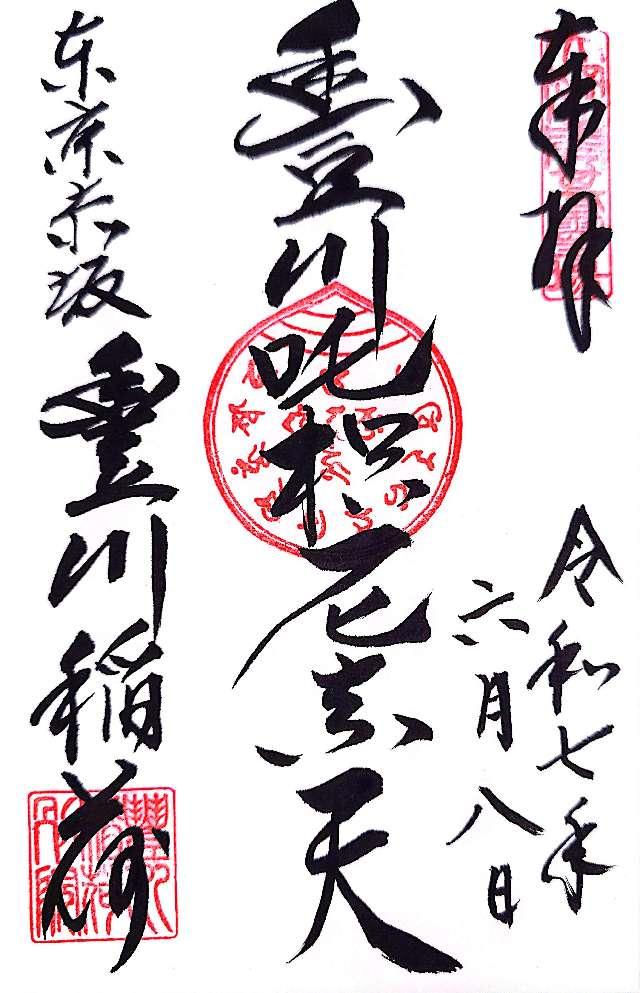 奉拝
令和七年
六月八日
豊川吒枳尼真天
東京赤坂
豊川稲荷